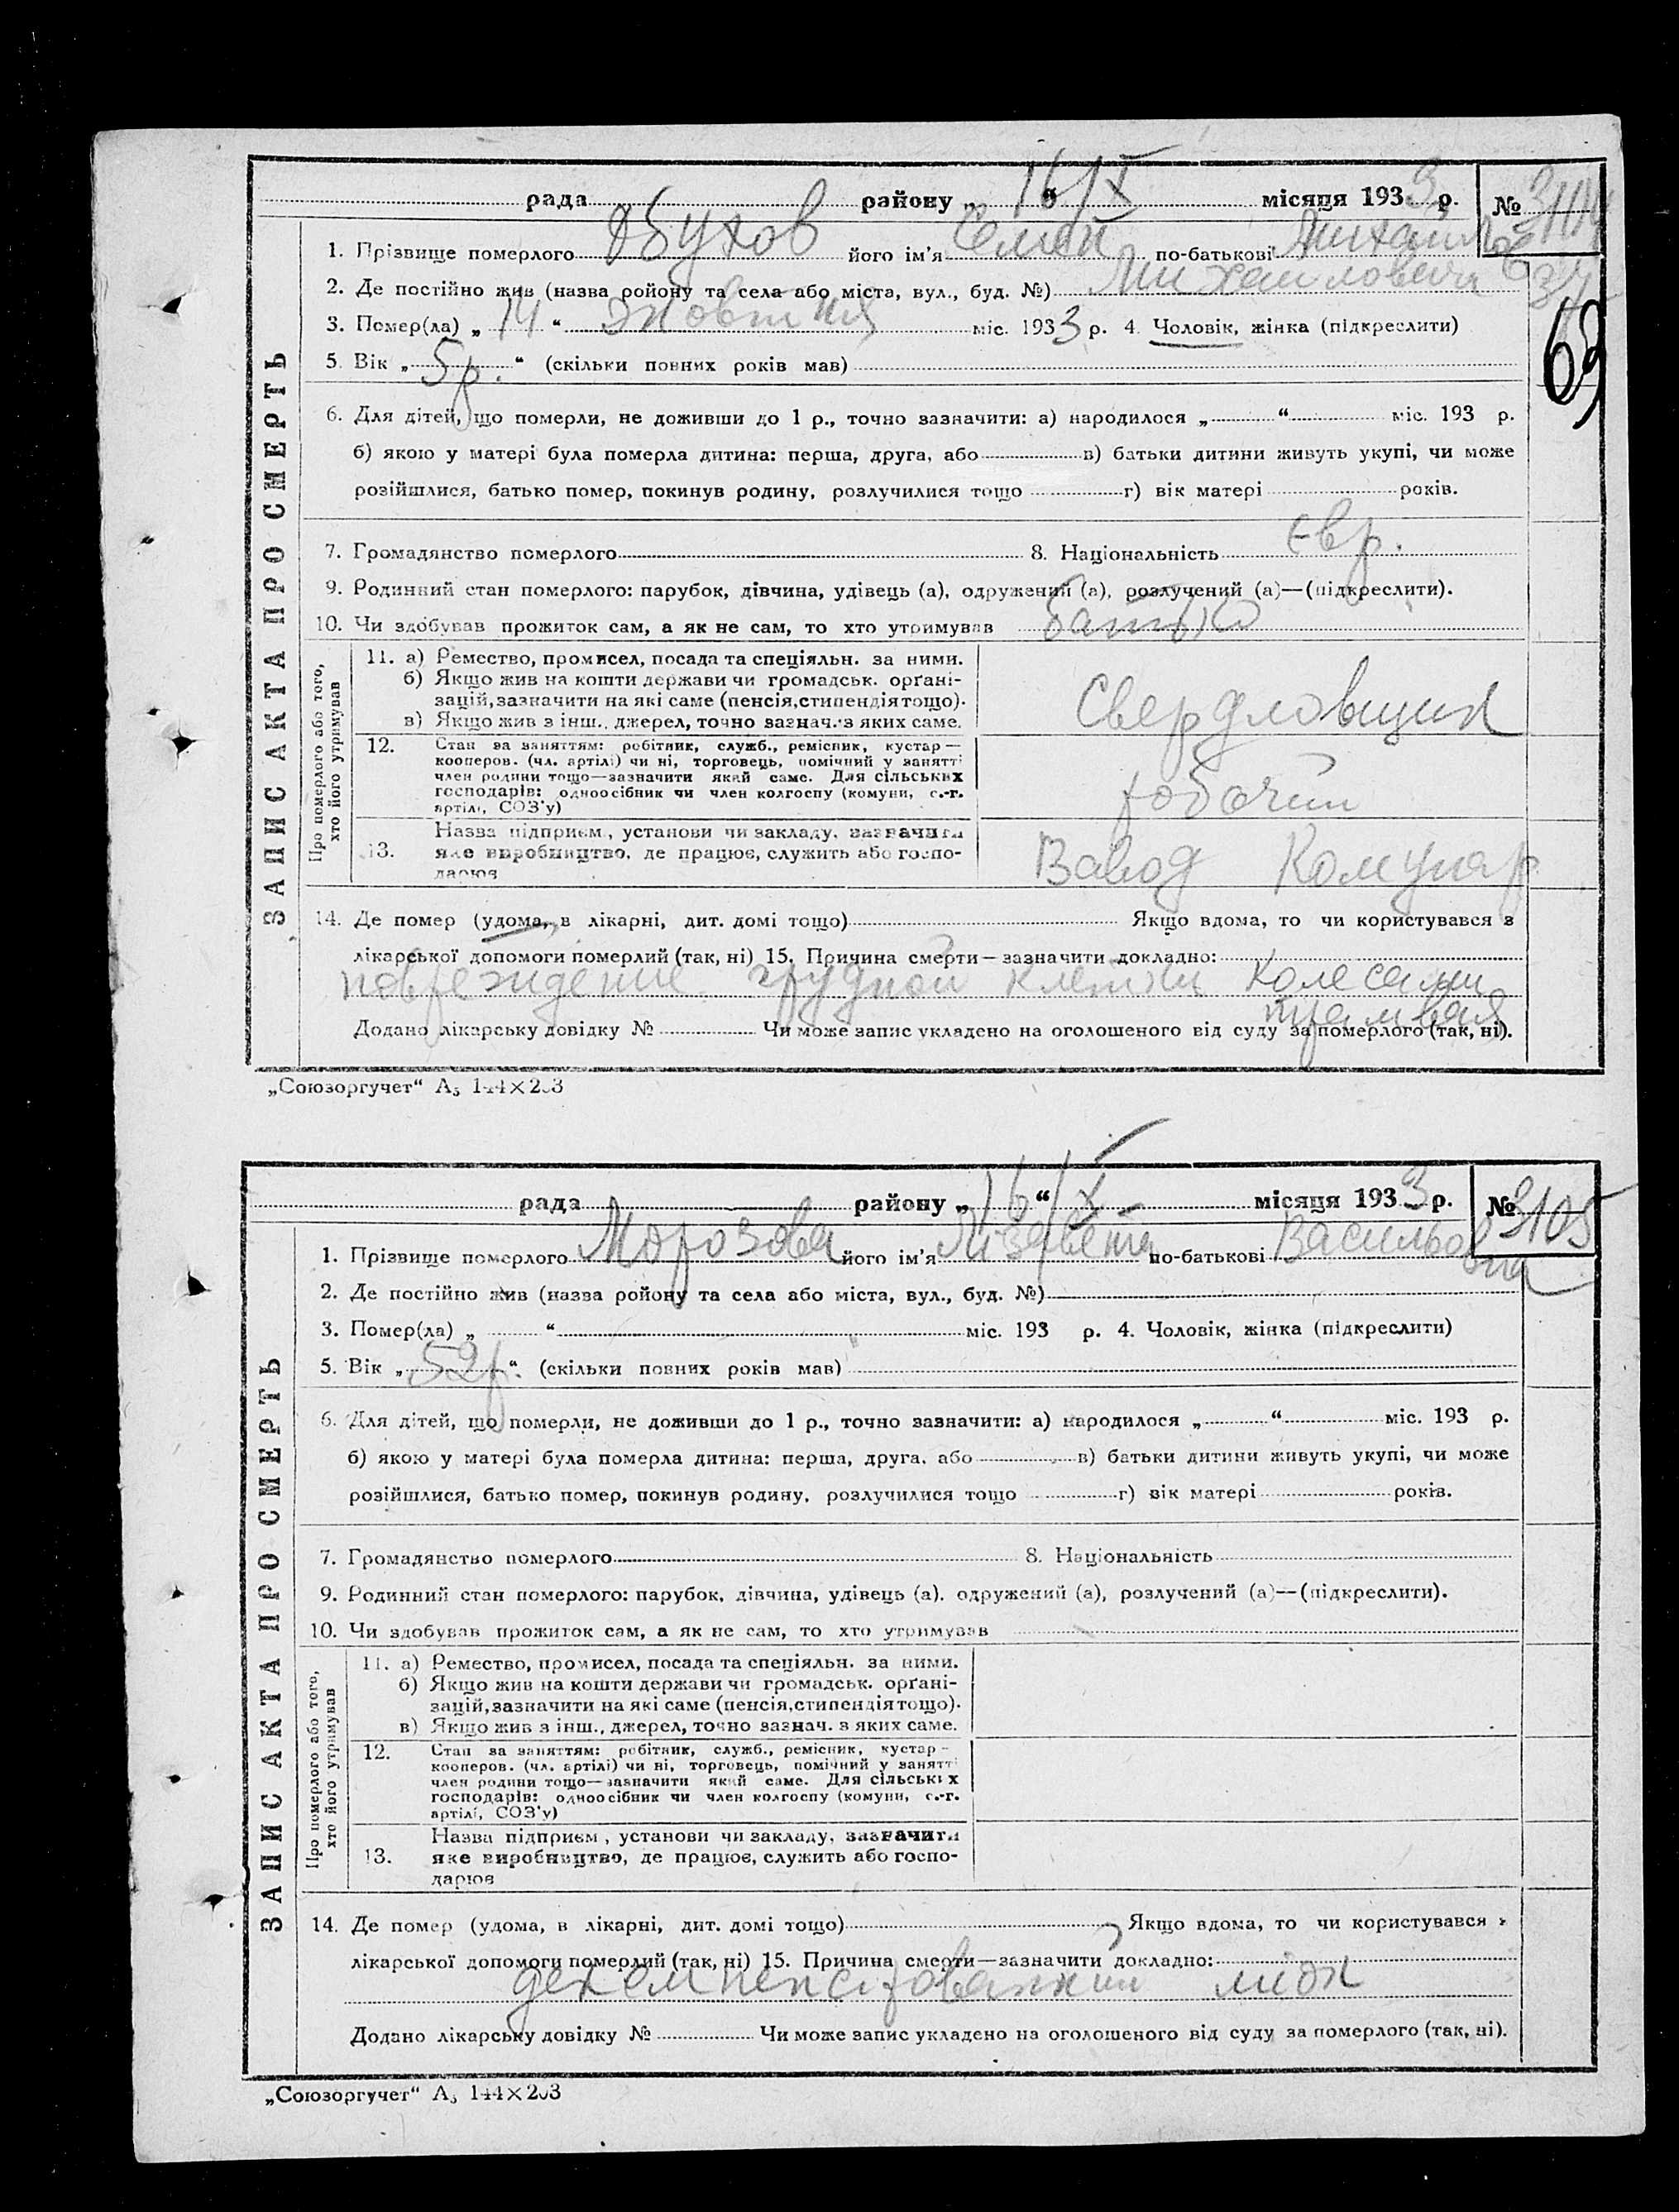 рада района „16“ X місяця 1933 р. №
1. Прізвище померлого Обухов його ім'я Семен по-батькові Михайлов
2. Де постійно жив (назва ройону та села або міста, вул., буд. №) Михаиловича
3. Помер(ла) „14“ жовтня міс. 1933 р. 4. Чоловік, жінка (підкреслити)
69
5. Вік „5 р.“ (скільки повних років мав)
6. Для дітей, що померли, не доживши до 1 р., точно зазначити: а) народилося „ “ міс. 193 р.
б) якою у матері була померла дитина: перша, друга, або в) батьки дитини живуть укупі, чи може
розійшлися, батько помер, покинув родину, розлучилися тощо г) вік матері років.
7. Громадянство померлого 8. Національність євр.
9. Родинний стан померлого: парубок, дівчина, удівець (а), одружений (а), розлучений (а)—(підкреслити).
10. Чи здобував прожиток сам, а як не сам, то хто утримував батько
ЗАПИС АКТА ПРО СМЕРТЬ
Про померлого або того,
хто його утримував
11. а) Ремество, промисел, посада та спеціяльн. за ними.
б) Якщо жив на кошти держави чи громадськ. орґані-
зацій, зазначити на які саме (пенсія, стипендія тощо).
в) Якщо жив з інш., джерел, точно зазнач. з яких саме.
Свердловщик
12. Стан за заняттям: робітник, служб., ремісник, кустар—
кооперов. (чл. артілі) чи ні, торговець, помічний у занятті
член родини тощо—зазначити який саме. Для сільських
господарів: одноосібник чи член колгоспу (комуни, с.-г.
артілі, СОЗ'у)
робочий
13. Назва підприєм., установи чи закладу, зазначити
яке виробництво, де працює, служить або госпо-
дарює
Завод Комунар
14. Де помер (удома, в лікарні, дит. домі тощо) Якщо вдома, то чи користувався з
лікарської допомоги померлий (так, ні) 15. Причина смерти—зазначити докладно:
повреждение грудной клетки колесами
трамвая
Додано лікарську довідку № Чи може запис укладено на оголошеного від суду за померлого (так, ні).
„Союзоргучет“ А₅ 144×203
рада району „16“ X місяця 1933 р. № 3105
1. Прізвище померлого Морозова його ім'я Лизавета по-батькові Васильовна
2. Де постійно жив (назва ройону та села або міста, вул., буд. №)
3. Помер(ла) „ “ міс. 193 р. 4. Чоловік, жінка (підкреслити)
5. Вік „52 р.“ (скільки повних років мав)
6. Для дітей, що померли, не доживши до 1 р., точно зазначити: а) народилося „ “ міс. 193 р.
б) якою у матері була померла дитина: перша, друга, або в) батьки дитини живуть укупі, чи може
розійшлися, батько помер, покинув родину, розлучилися тощо г) вік матері років.
7. Громадянство померлого 8. Національність
9. Родинний стан померлого: парубок, дівчина, удівець (а), одружений (а), розлучений (а)—(підкреслити).
10. Чи здобував прожиток сам, а як не сам, то хто утримував
ЗАПИС АКТА ПРО СМЕРТЬ
Про померлого або того,
хто його утримував
11. а) Ремество, промисел, посада та спеціяльн. за ними.
б) Якщо жив на кошти держави чи громадськ. орґані-
зацій, зазначити на які саме (пенсія, стипендія тощо).
в) Якщо жив з інш., джерел, точно зазнач. з яких саме.
12. Стан за заняттям: робітник, служб., ремісник, кустар—
кооперов. (чл. артілі) чи ні, торговець, помічний у занятті
член родини тощо—зазначити який саме. Для сільських
господарів: одноосібник чи член колгоспу (комуни, с.-г.
артілі, СОЗ'у)
13. Назва підприєм., установи чи закладу, зазначити
яке виробництво, де працює, служить або госпо-
дарює
14. Де помер (удома, в лікарні, дит. домі тощо) Якщо вдома, то чи користувався з
лікарської допомоги померлий (так, ні) 15. Причина смерти—зазначити докладно:
Додано лікарську довідку № Чи може запис укладено на оголошеного від суду за померлого (так, ні).
„Союзоргучет“ А₅ 144×203